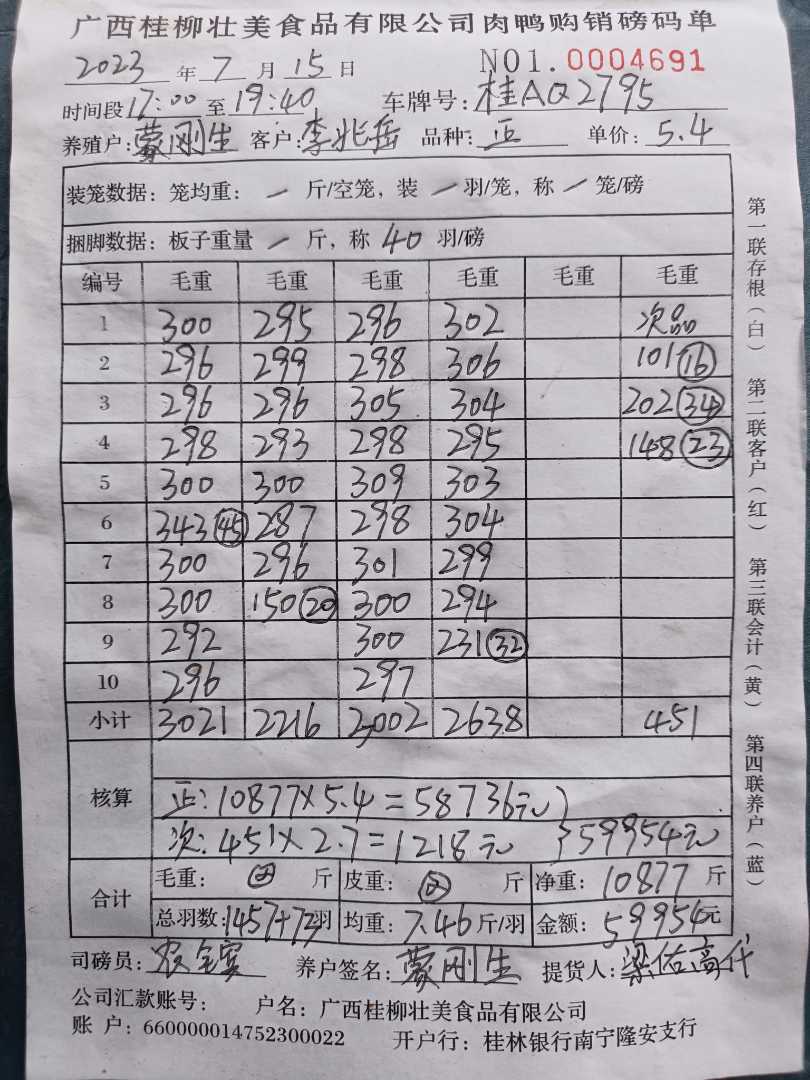 广西桂柳壮美食品有限公司肉鸭购销磅码单
2023 年 7 月 15 日 NO1. 0004691
时间段 17:00 至 19:40 车牌号: 桂AQ2795
养殖户: 蒙刚生 客户: 李兆岳 品种: 正 单价: 5.4
装笼数据: 笼均重: 一 斤/空笼, 装 一 羽/笼, 称 一 笼/磅
捆脚数据: 板子重量 一 斤, 称 40 羽/磅
编号 毛重 毛重 毛重 毛重 毛重 毛重
1 300 295 296 302 次品
2 296 299 298 306 101 16
3 296 296 305 304 202 34
4 298 293 298 295 148 23
5 300 300 309 303
6 343 45 287 298 304
7 300 296 301 299
8 300 150 20 300 294
9 292 300 231 32
10 296 297
小计 3021 2216 3002 2638 451
核算
正: 10877×5.4=58736元
次: 451×2.7=1218元 } 59954元
合计
毛重: 斤 皮重: 斤 净重: 10877 斤
总羽数: 1457+73羽 均重: 7.46 斤/羽 金额: 59954元
司磅员: 养户签名: 蒙刚生 提货人: 梁佑高代
公司汇款账号: 户名: 广西桂柳壮美食品有限公司
账 户: 660000014752300022 开户行: 桂林银行南宁隆安支行
第一联存根(白) 第二联客户(红) 第三联会计(黄) 第四联养户(蓝)